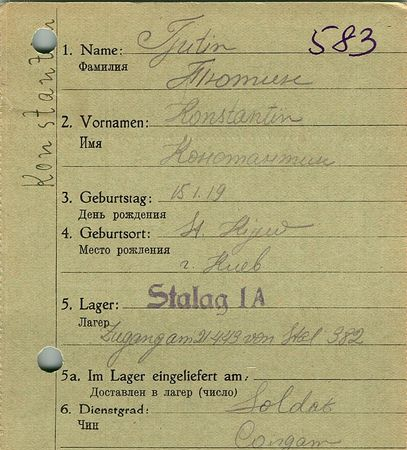 Konstantin
583
1. Name: Tjutin
Фамилия
Тютин
2. Vornamen: Konstantin
Имя
Константин
3. Geburtstag: 15.1.19
День рождения
4. Geburtsort: St. Kijew
Место рождения
г. Киев
5. Lager: Stalag IA
Лагер
Zugang am 21 4 43 von Stal. 382
5a. Im Lager eingeliefert am:
Доставлен в лагер (число)
6. Dienstgrad: Soldat
Чин
Солдат